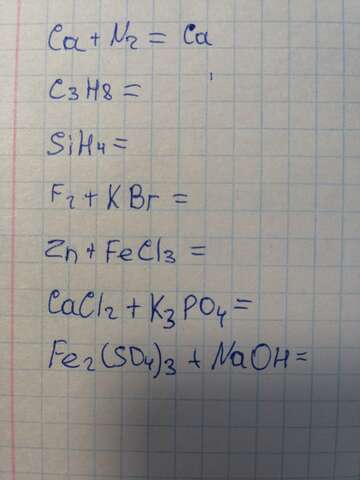 Ca + N2 = Ca
C3H8 =
SiH4 =
F2 + KBr =
Zn + FeCl3 =
CaCl2 + K3PO4 =
Fe2(SO4)3 + NaOH =